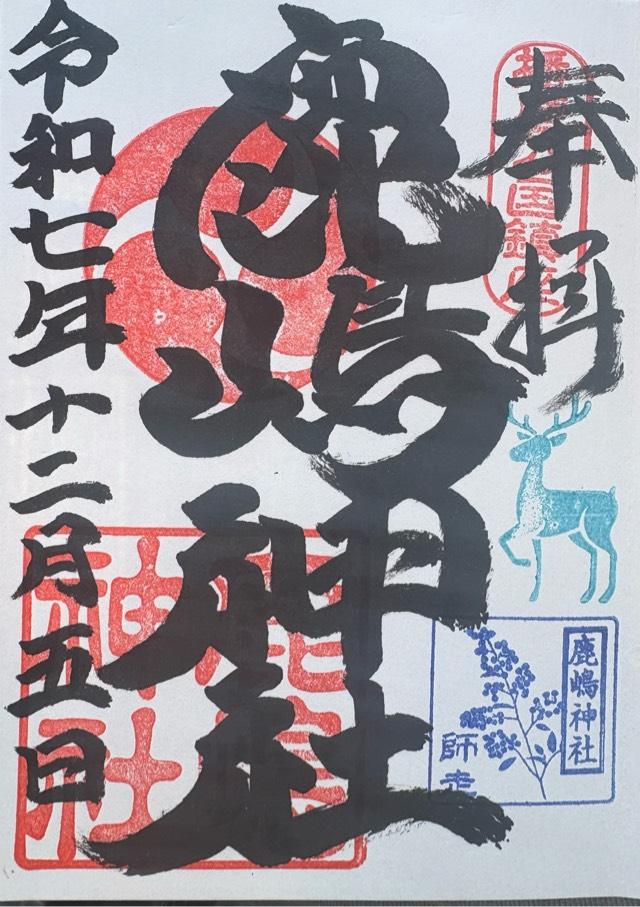 奉拝
鹿嶋神社
令和七年十二月五日
鹿嶋神社
師走
鹿嶋
神社